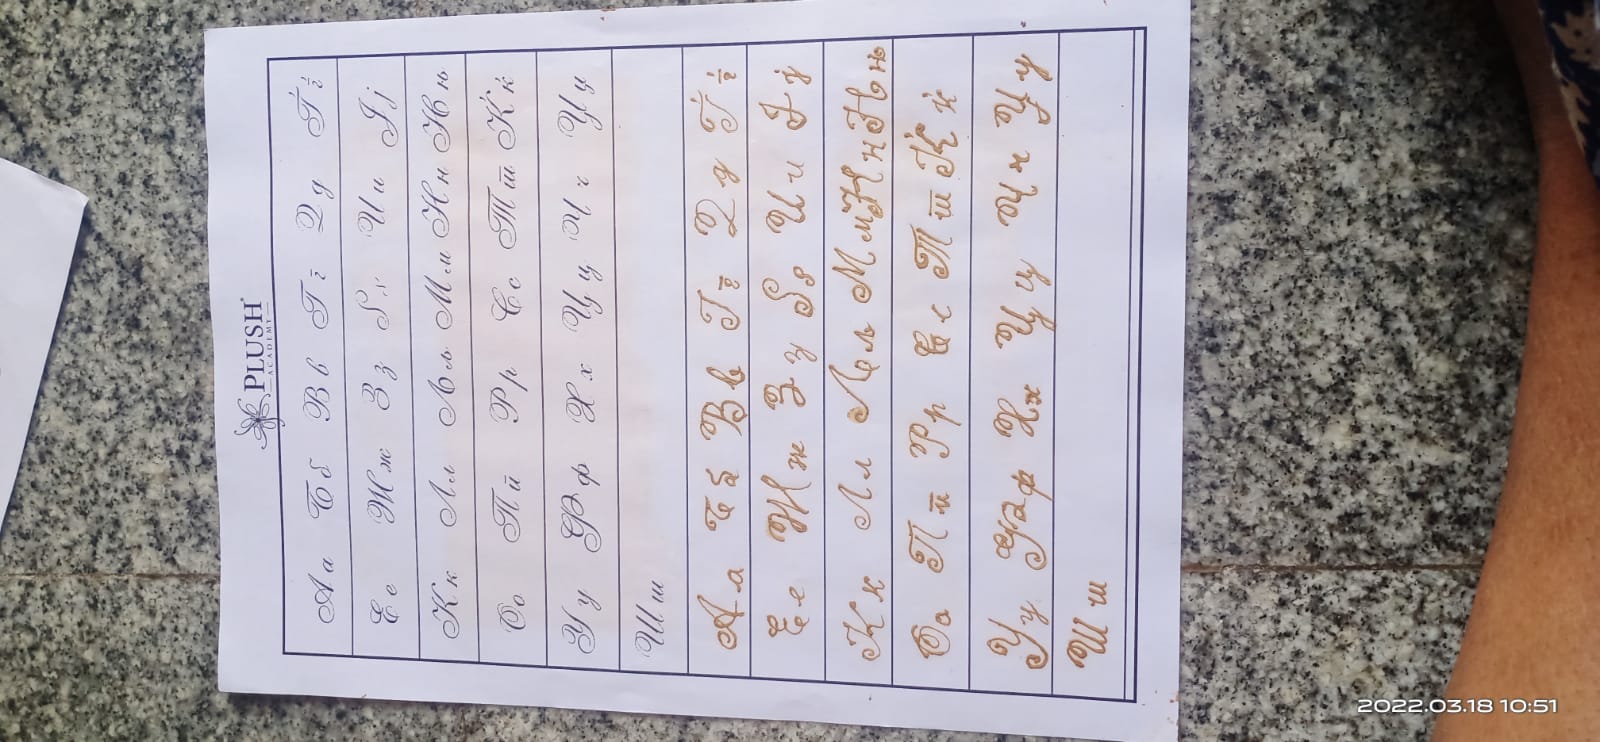 PLUSH
ACADEMY
Аа Бб Вв Гг Дд Ѓѓ
Ее Жж Зз Ѕѕ Ии Јј
Кк Лл Љљ Мм Нн Њњ
Оо Пп Рр Сс Тт Ќќ
Уу Фф Хх Цц Чч Џџ
Шш
Аа Бб Вв Гг Дд Ѓѓ
Ее Жж Зз Ѕѕ Ии Јј
Кк Лл Љљ Мм Нн Њњ
Оо Пп Рр Сс Тт Ќќ
Уу Фф Хх
Шш
2022.03.18 10:51